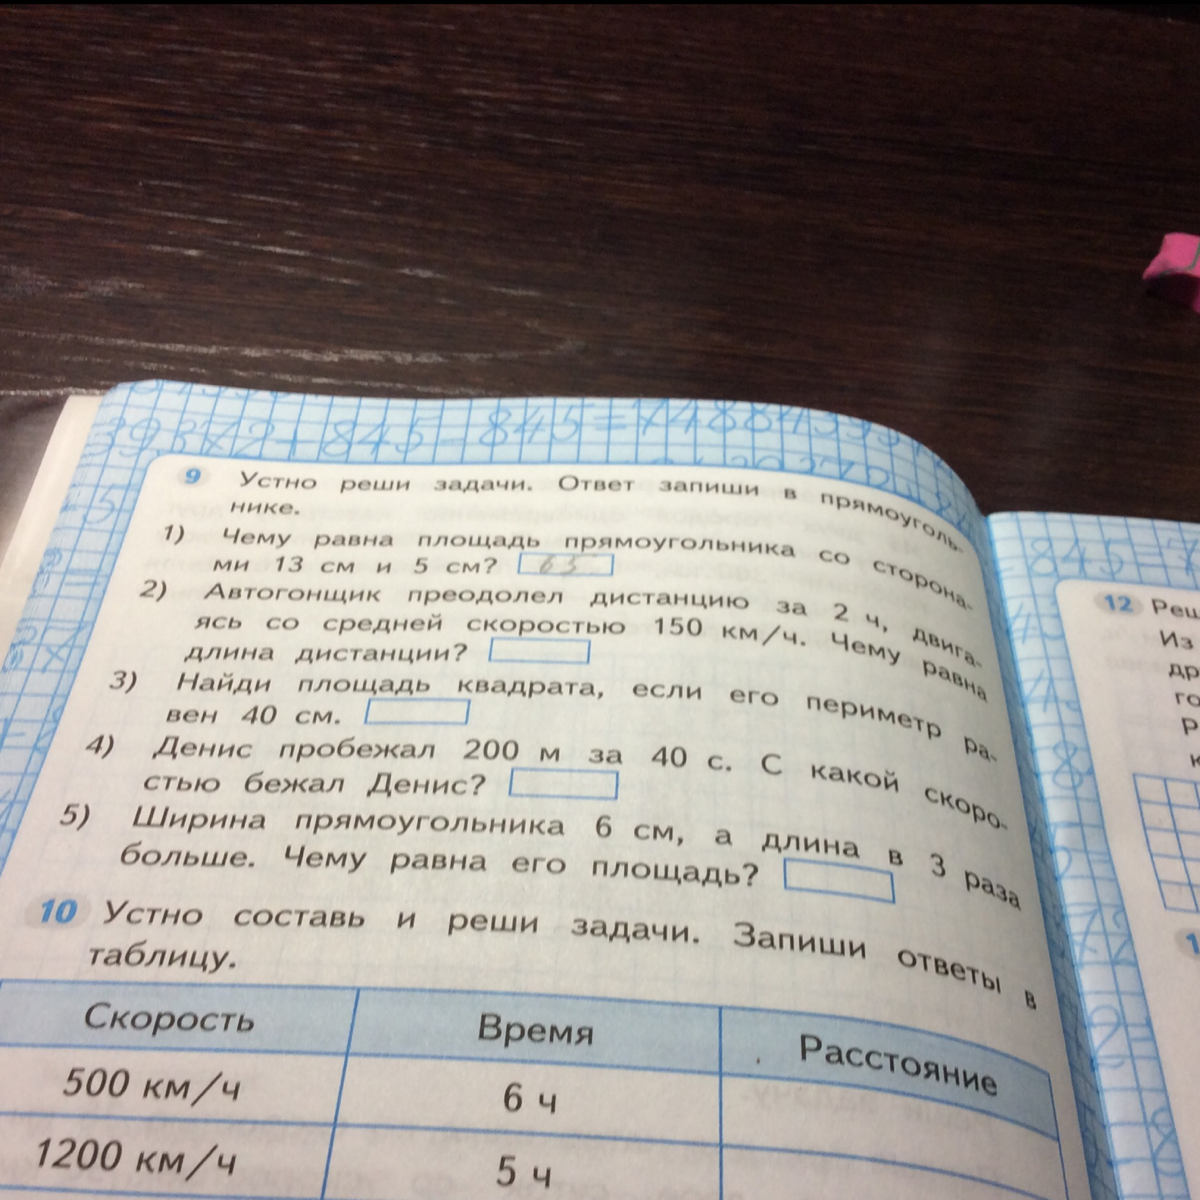 39372+845-845=748845
9 Устно реши задачи. Ответ запиши в прямоуголь-
нике.
1) Чему равна площадь прямоугольника со сторона-
ми 13 см и 5 см? 65
2) Автогонщик преодолел дистанцию за 2 ч, двига-
ясь со средней скоростью 150 км/ч. Чему равна
длина дистанции?
3) Найди площадь квадрата, если его периметр ра-
вен 40 см.
4) Денис пробежал 200 м за 40 с. С какой скоро-
стью бежал Денис?
5) Ширина прямоугольника 6 см, а длина в 3 раза
больше. Чему равна его площадь?
10 Устно составь и реши задачи. Запиши ответы в
таблицу.
Скорость Время Расстояние
500 км/ч 6 ч
1200 км/ч 5 ч
12 Реш
Из
др
го
Р
к